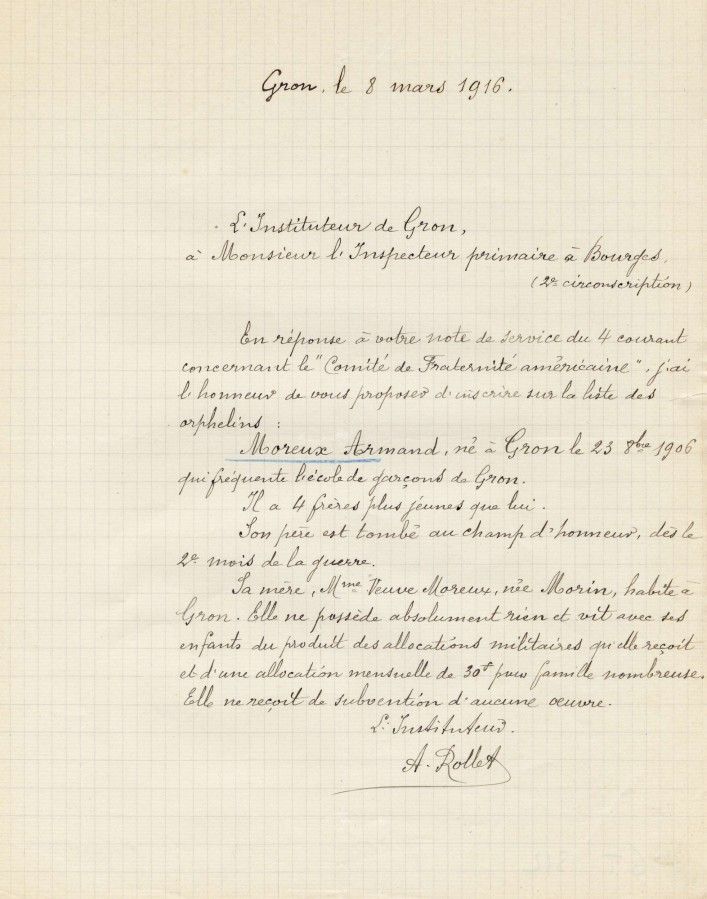 Gron, le 8 mars 1916.
L'Instituteur de Gron,
à Monsieur l'Inspecteur primaire à Bourges.
(2e circonscription)
En réponse à votre note de service du 4 courant
concernant le "Comité de Fraternité américaine", j'ai
l'honneur de vous proposer d'inscrire sur la liste des
orphelins :
Moreux Armand, né à Gron le 23 8bre 1906
qui fréquente l'école de garçons de Gron.
Il a 4 frères plus jeunes que lui.
Son père est tombé au champ d'honneur, dès le
2e mois de la guerre.
Sa mère, Mme Veuve Moreux, née Morin, habite à
Gron. Elle ne possède absolument rien et vit avec ses
enfants du produit des allocations militaires qu'elle reçoit
et d'une allocation mensuelle de 30f pour famille nombreuse.
Elle ne reçoit de subvention d'aucune œuvre.
L'Instituteur.
A. Rollet